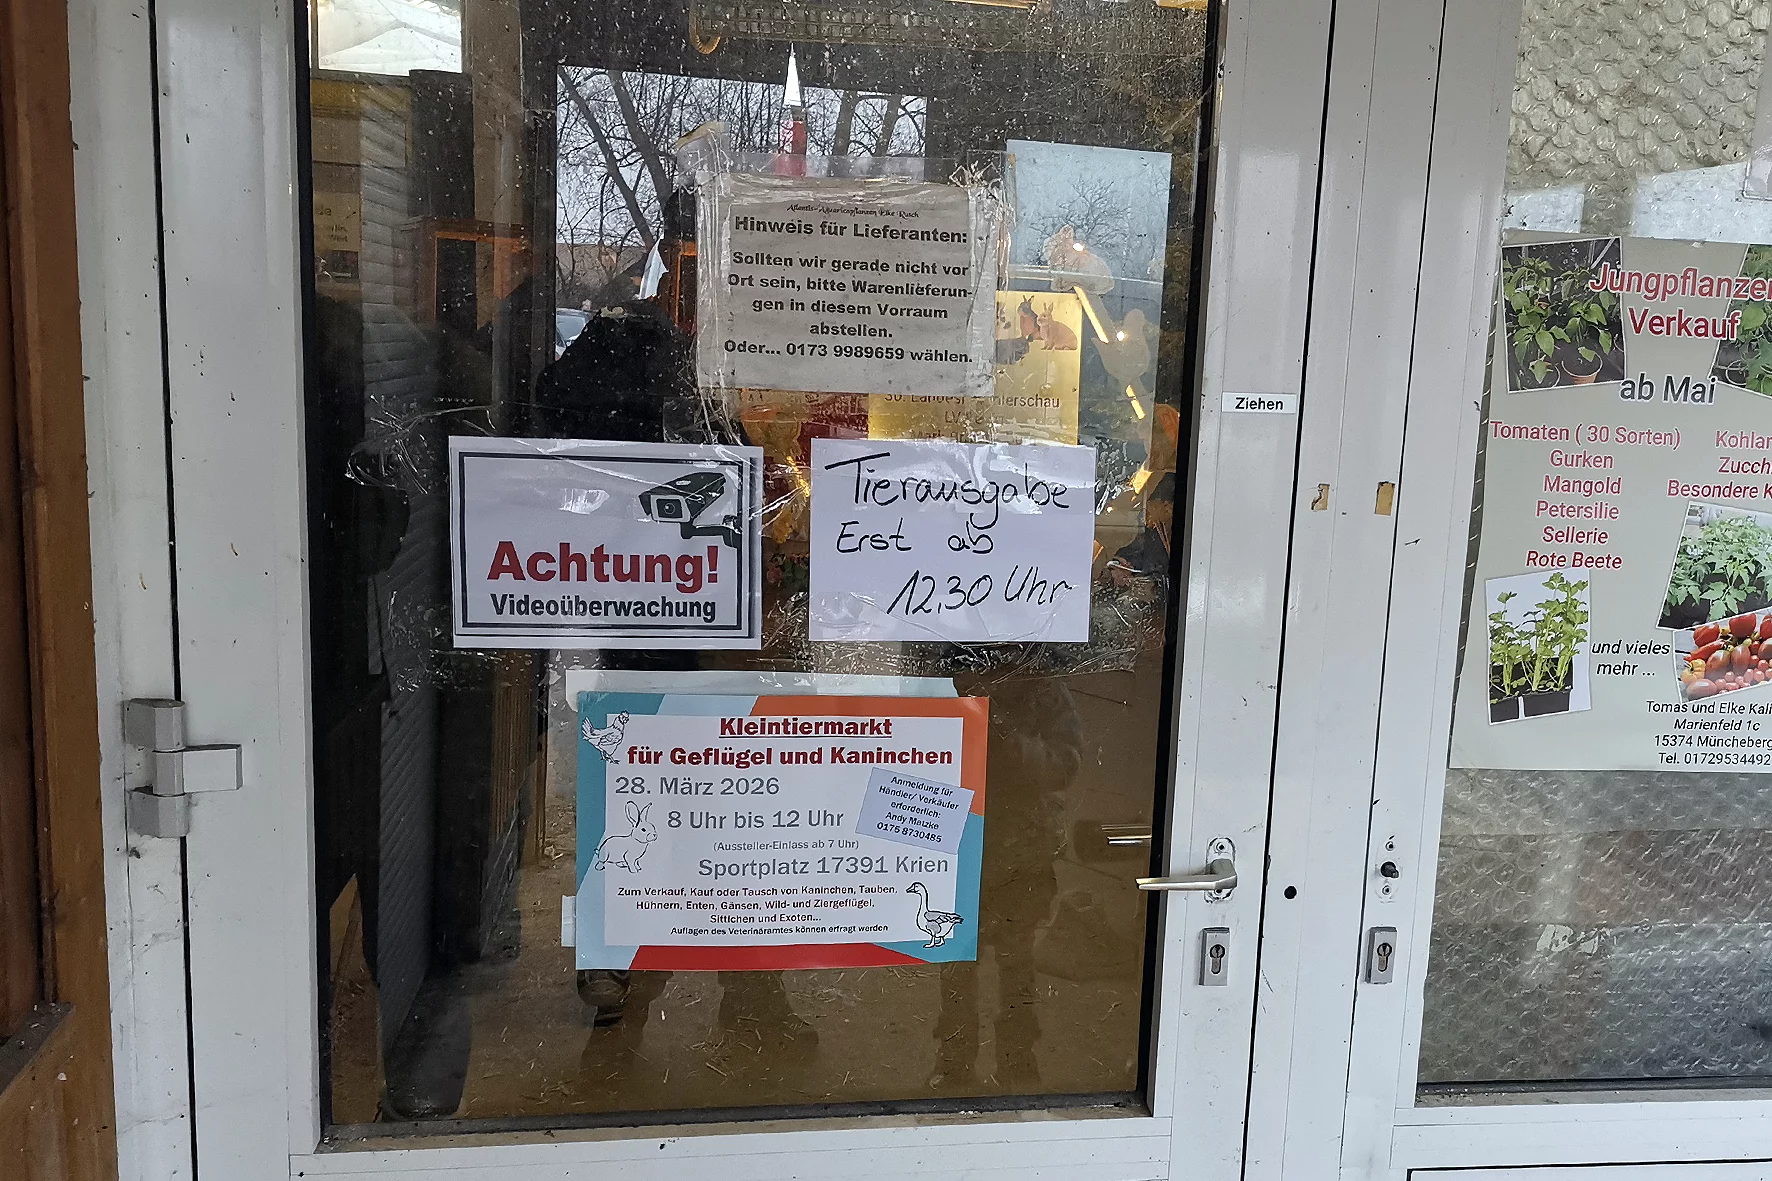 Atlantis-Aquarienpflanzen Elke Rusch
Hinweis für Lieferanten:
Sollten wir gerade nicht vor
Ort sein, bitte Warenlieferun-
gen in diesem Vorraum
abstellen.
Oder... 0173 9989659 wählen.
30.
Achtung!
Videoüberwachung
Tierausgabe
Erst ab
12,30 Uhr
Kleintiermarkt
für Geflügel und Kaninchen
28. März 2026
8 Uhr bis 12 Uhr
(Aussteller-Einlass ab 7 Uhr)
Sportplatz 17391 Krien
Anmeldung für
Händler/ Verkäufer
erforderlich:
Andy Matzke
0175 8730485
Zum Verkauf, Kauf oder Tausch von Kaninchen, Tauben,
Hühnern, Enten, Gänsen, Wild- und Ziergeflügel,
Sittichen und Exoten...
Auflagen des Veterinäramtes können erfragt werden
Ziehen
Jungpflanzen
Verkauf
ab Mai
Tomaten ( 30 Sorten)
Gurken
Mangold
Petersilie
Sellerie
Rote Beete
Kohlra
Zucch
Besondere K
und vieles
mehr ...
Tomas und Elke Kali
Marienfeld 1c
15374 Müncheberg
Tel. 01729534492